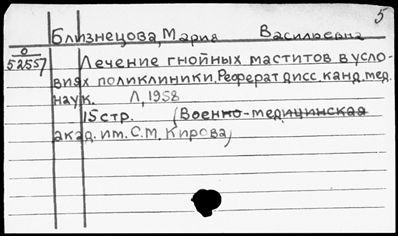 5
Близнецова, Мария Васильевна
0
52557
Лечение гнойных маститов в усло-
виях поликлиники. Реферат дисс. канд. мед.
наук. Л, 1958
15 стр. (Военно-медицинская
акад. им. С.М. Кирова)